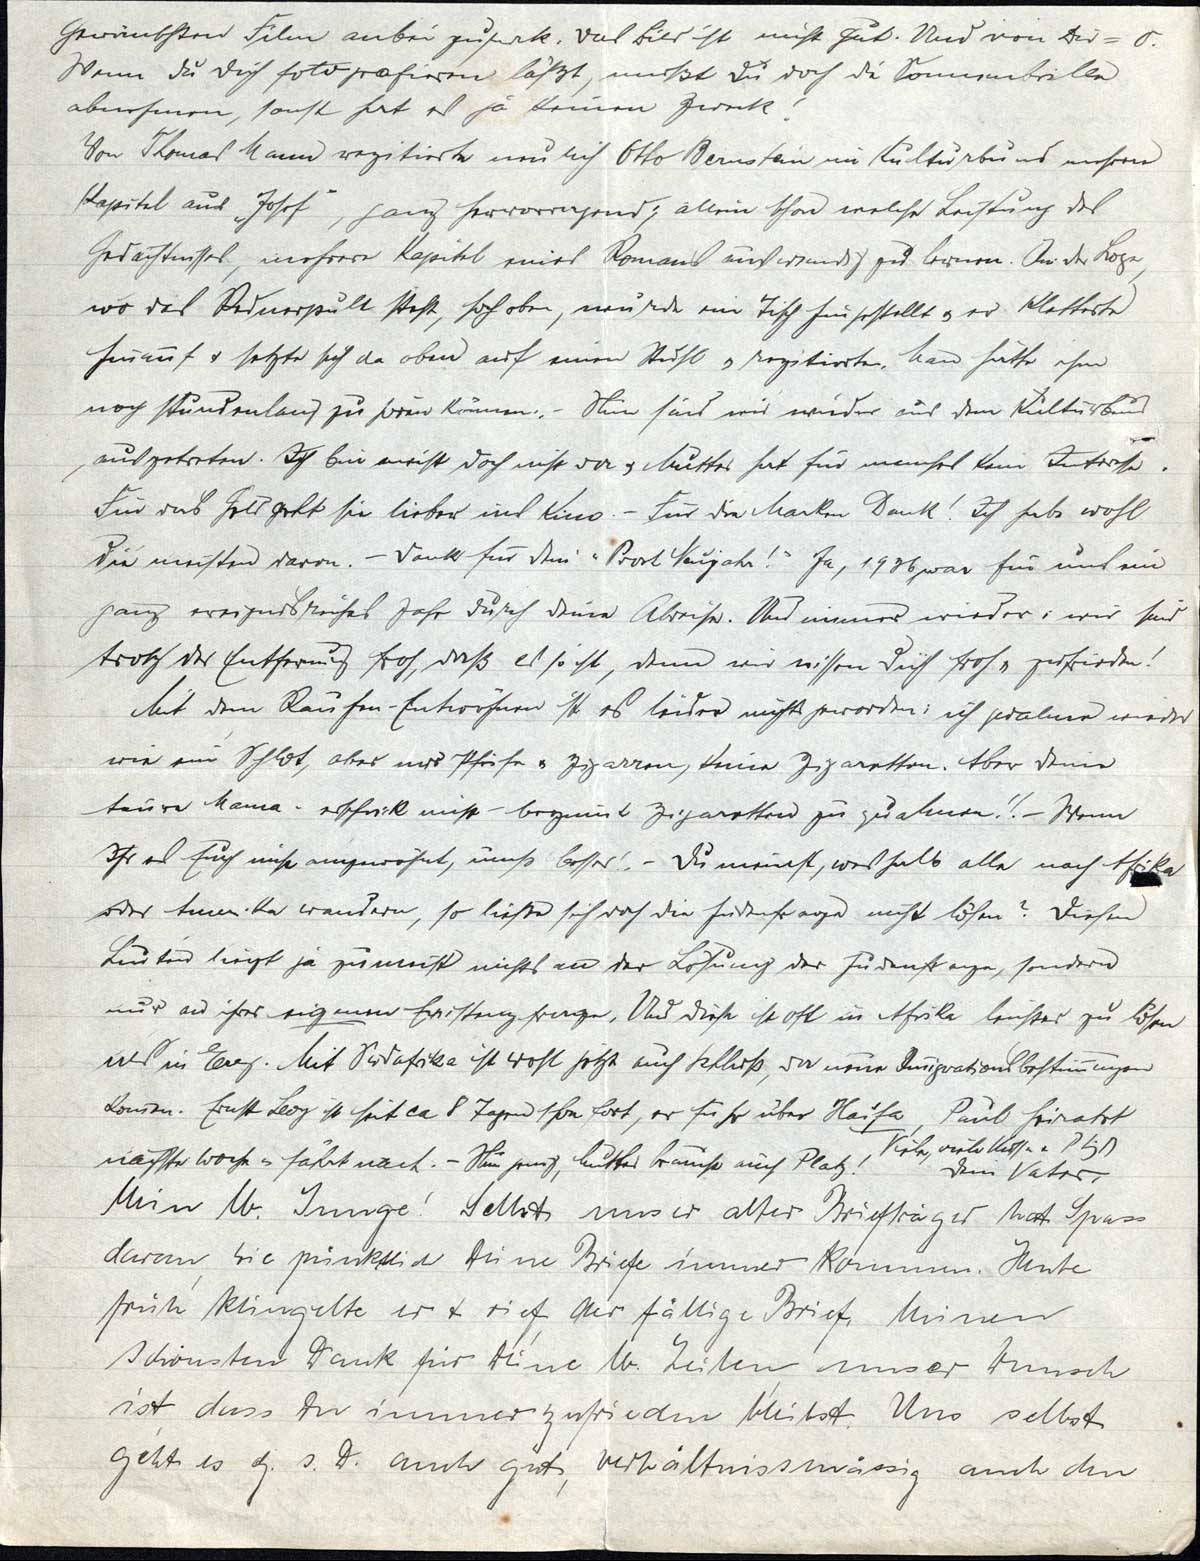 Gewünschten Film anbei zurück. Das Bild ist nicht gut. Und von Dir = 0.
Wenn Du Dich fotografieren läßt, mußt Du doch die Sonnenbrille
abnehmen, sonst hat es ja keinen Zweck!
Von Thomas Mann rezitierte neulich Otto Bernstein im Kulturbund mehrere
Kapitel aus „Josef“, ganz hervorragend; allein schon welche Leistung des
Gedächtnisses, mehrere Kapitel eines Romans auswendig zu lernen. In der Loge,
wo das Rednerpult steht, hoch oben, wurde ein Tisch hingestellt & er kletterte
hinauf & setzte sich da oben auf einen Stuhl & rezitierte. Man hätte ihm
noch stundenlang zuhören können. – Nun sind wir wieder aus dem Kulturbund
ausgetreten. Ich bin meist doch nicht da & Mutter hat für manches kein Interesse.
Für das Geld geht sie lieber ins Kino. – Für die Marken Dank! Ich habe wohl
die meisten davon. – Dank für Dein „Prost Neujahr!“ Ja, 1936 war für uns ein
ganz ereignisreiches Jahr durch Deine Abreise. Und immer wieder: wir sind
trotz der Entfernung froh, daß es so ist, denn wir wissen Dich froh & zufrieden!
Mit dem Rauchen-Entwöhnen ist es leider nichts geworden: ich qualme wieder
wie ein Schlot, aber nur Pfeife & Zigarren, keine Zigaretten. Aber Deine
teure Mama – erschrick nicht – beginnt Zigaretten zu qualmen!! – Wenn
Ihr es Euch nicht angewöhnt, umso besser! – Du meinst, weshalb alle nach Afrika
oder Amerika wandern, so ließe sich doch die Judenfrage nicht lösen? Diesen
Leuten liegt ja zumeist nichts an der Lösung der Judenfrage, sondern
nur an ihrer eigenen Existenzfrage. Und diese ist oft in Afrika leichter zu lösen
als in Erez. Mit Südafrika ist wohl jetzt auch Schluß, da neue Immigrationsbestimmungen
kommen. Ernst Levy ist seit ca 8 Tagen schon fort, er fuhr über Haifa, Paul heiratet
nächste Woche & fährt nach. – Nun genug, Mutter braucht auch Platz! Viele, viele Küsse
Dein Vater.
Mein lb. Junge! Selbst unser alter Briefträger hat Spass
daran, wie pünktlich Deine Briefe immer kommen. Heute
früh klingelte er & rief der fällige Brief. Meinen
schönsten Dank für Deine lb. Zeilen, unser Wunsch
ist dass Du immer zufrieden bleibst. Uns selbst
geht es G. s. D. auch gut, verhältnissmässig auch den